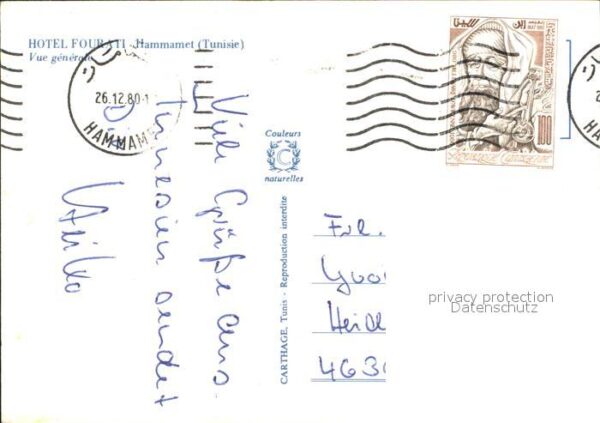 HOTEL FOURATI - Hammamet (Tunisie)
Vue générale
26.12.80-1
HAMMAM
26
HA
100
Couleurs
C
naturelles
CARTHAGE, Tunis - Reproduction interdite
Viele Grüße aus
Tunesien sendet
Dir
Frl.
Yvo
Heid
463
privacy protection
Datenschutz